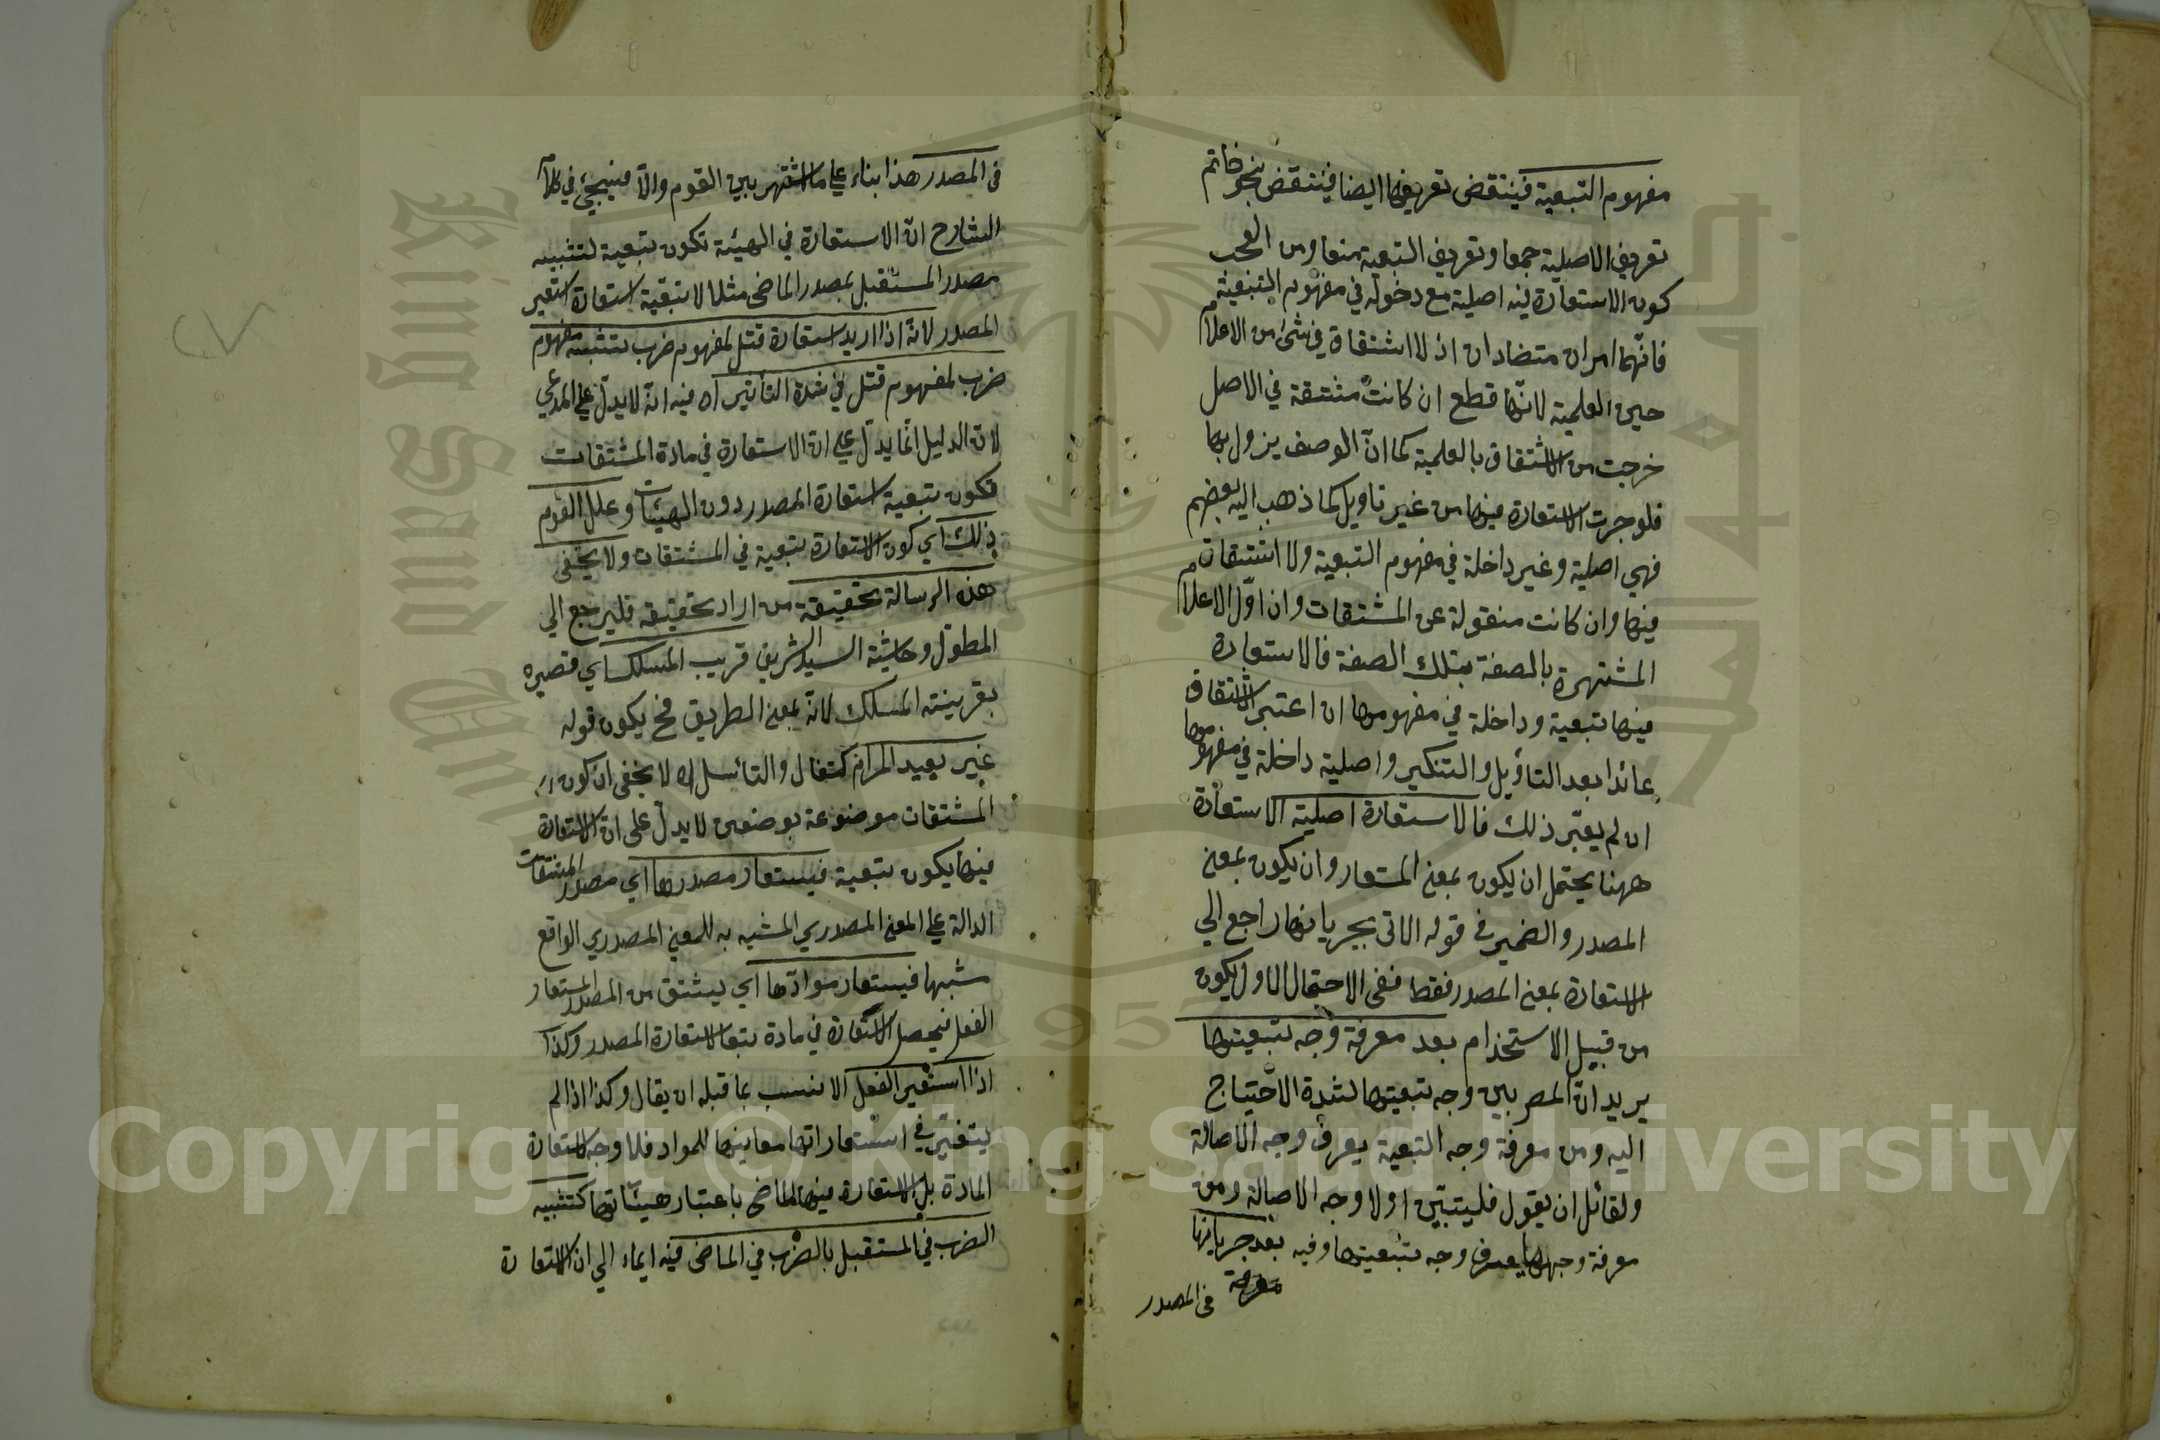 مفهوم التبعية فينتقض تعريفها ايضا فينتقض بنحو خاتم
تعريف الاصلية جمعا وتعريف التبعية منعا ومن العجب
كون الاستعارة فيه اصلية مع دخوله في مفهوم التبعية
فانهما امران متضادان اذ لا اشتقاق في شئ من الاعلام
حين العلمية لانها قطع ان كانت مشتقة في الاصل
خرجت من الاشتقاق بالعلمية كما انّ الوصف يزول بها
فلو جرت الاستعارة فيها من غير تاويل كما ذهب اليه بعضهم
فهي اصلية وغير داخلة في مفهوم التبعية ولا اشتقاق
فيها وان كانت منقولة عن المشتقات وان اوّل الاعلام
المشتهرة بالصفة بتلك الصفة فالاستعارة
فيها تبعية وداخلة في مفهومها ان اعتبر الاشتقاق
عائدا بعد التأويل والتنكير واصلية داخلة في مفهومها
ان لم يعتبر ذلك فالاستعارة اصلية الاستعارة
ههنا يحتمل ان يكون بمعنى المستعار وان يكون بمعنى
المصدر والضمير في قوله الاتى بجريانها راجع الي
الاستعارة بمعنى المصدر فقط ففى الاحتمال الاول يكون
من قبيل الاستخدام بعد معرفة وجه تبعيتها
يريد انّ المص بين وجه تبعيتها لشدة الاحتياج
اليه ومن معرفة وجه التبعية يعرف وجه الاصالة
ولقائل ان يقول فليتبيّن اولا وجه الاصالة ومن
معرفة وجهها يعرف وجه تبعيتها وفيه بعد جريانها
معرفة
في المصدر
في المصدر هذا بناء علي ما اشتهر بين القوم والاّ فيجئ في كلام
الشارح انّ الاستعارة في الهيئة تكون بتبعية لتشبيه
مصدر المستقبل بمصدر الماضى مثلا لا بتبعية استعارة استعير
المصدر لانه اذا اريد استعارة قتل لمفهوم ضرب بتشبيه مفهوم
ضرب لمفهوم قتل في شدة التأثير اه فيه انّه لا يدلّ علي المدعي
لان الدليل انما يدلّ علي انّ الاستعارة في مادة المشتقات
تكون بتبعية استعارة المصدر دون الهيئات وعلل القوم
ذلك اي كون الاستعارة بتبعية في المشتقات ولا يخفى
هذه الرسالة تحقيقة من اراد تحقيقه فليرجع الي
المطول وحاشية السيد الشريف قريب المسلك اي قصيره
بقرينة المسلك لانّه بمعنى الطريق فح يكون قوله
غير بعيد المرام كتفال والتأسل اه لا يخفى ان كون
المشتقات موضوعة بوضعين لا يدلّ على انّ الاستعارة
فيها يكون بتبعية فيستعار مصدرها اي مصدر المشتقات
الدالة علي المعنى المصدري المشبه به للمعنى المصدري الواقع
مشبها فيستعار موادّها اي يشتق من المصدر المستعار
الفعل فيحصل الاستعارة في مادة بتبع الاستعارة المصدر وكذا
اذا استعير الفعل الانسب بما قبله ان يقال وكذا اذا لم
يتغيّر في استعاراتها معانيها للمواد فلا وجه لاستعارة
المادة بل الاستعارة فيها للماضى باعتبار هيئاتها كتشبيه
الضرب في المستقبل بالضرب في الماضى فيه ايماء الي ان الاستعارة
Copyright © King Saud University
King Saud University
1957